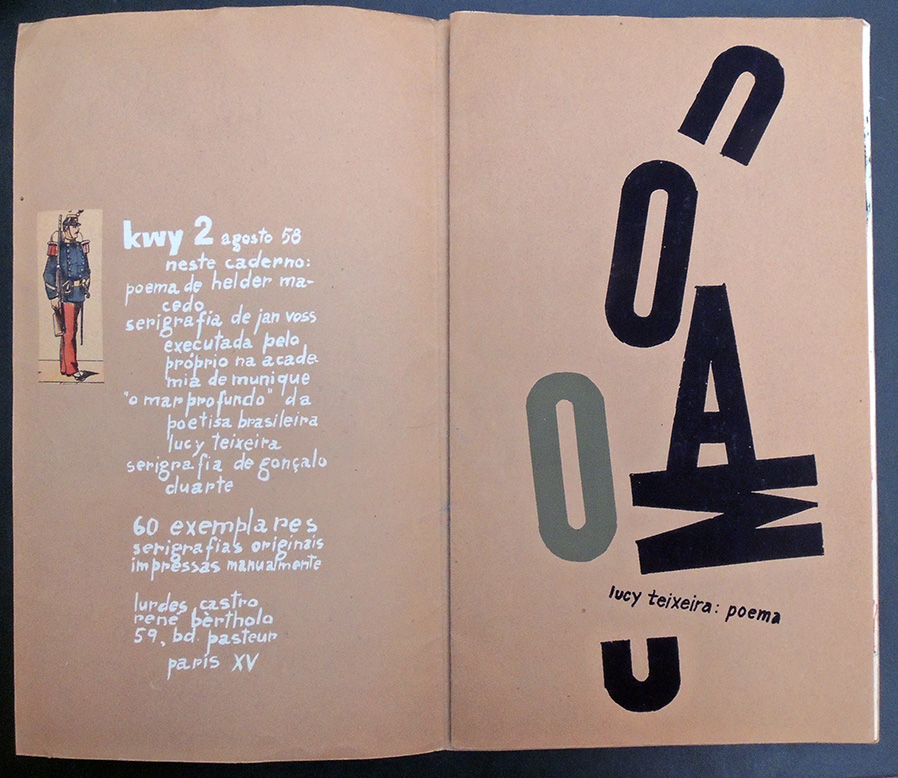 kwy 2 agosto 58
neste caderno:
poema de helder ma-
cedo
serigrafia de jan voss
executada pelo
próprio na acade-
mia de munique
"o mar profundo" da
poetisa brasileira
lucy teixeira
serigrafia de gonçalo
duarte
60 exemplares
serigrafias originais
impressas manualmente
lurdes castro
rené bèrtholo
59, bd. pasteur
paris XV
n
O
A
O
M
lucy teixeira: poema
U